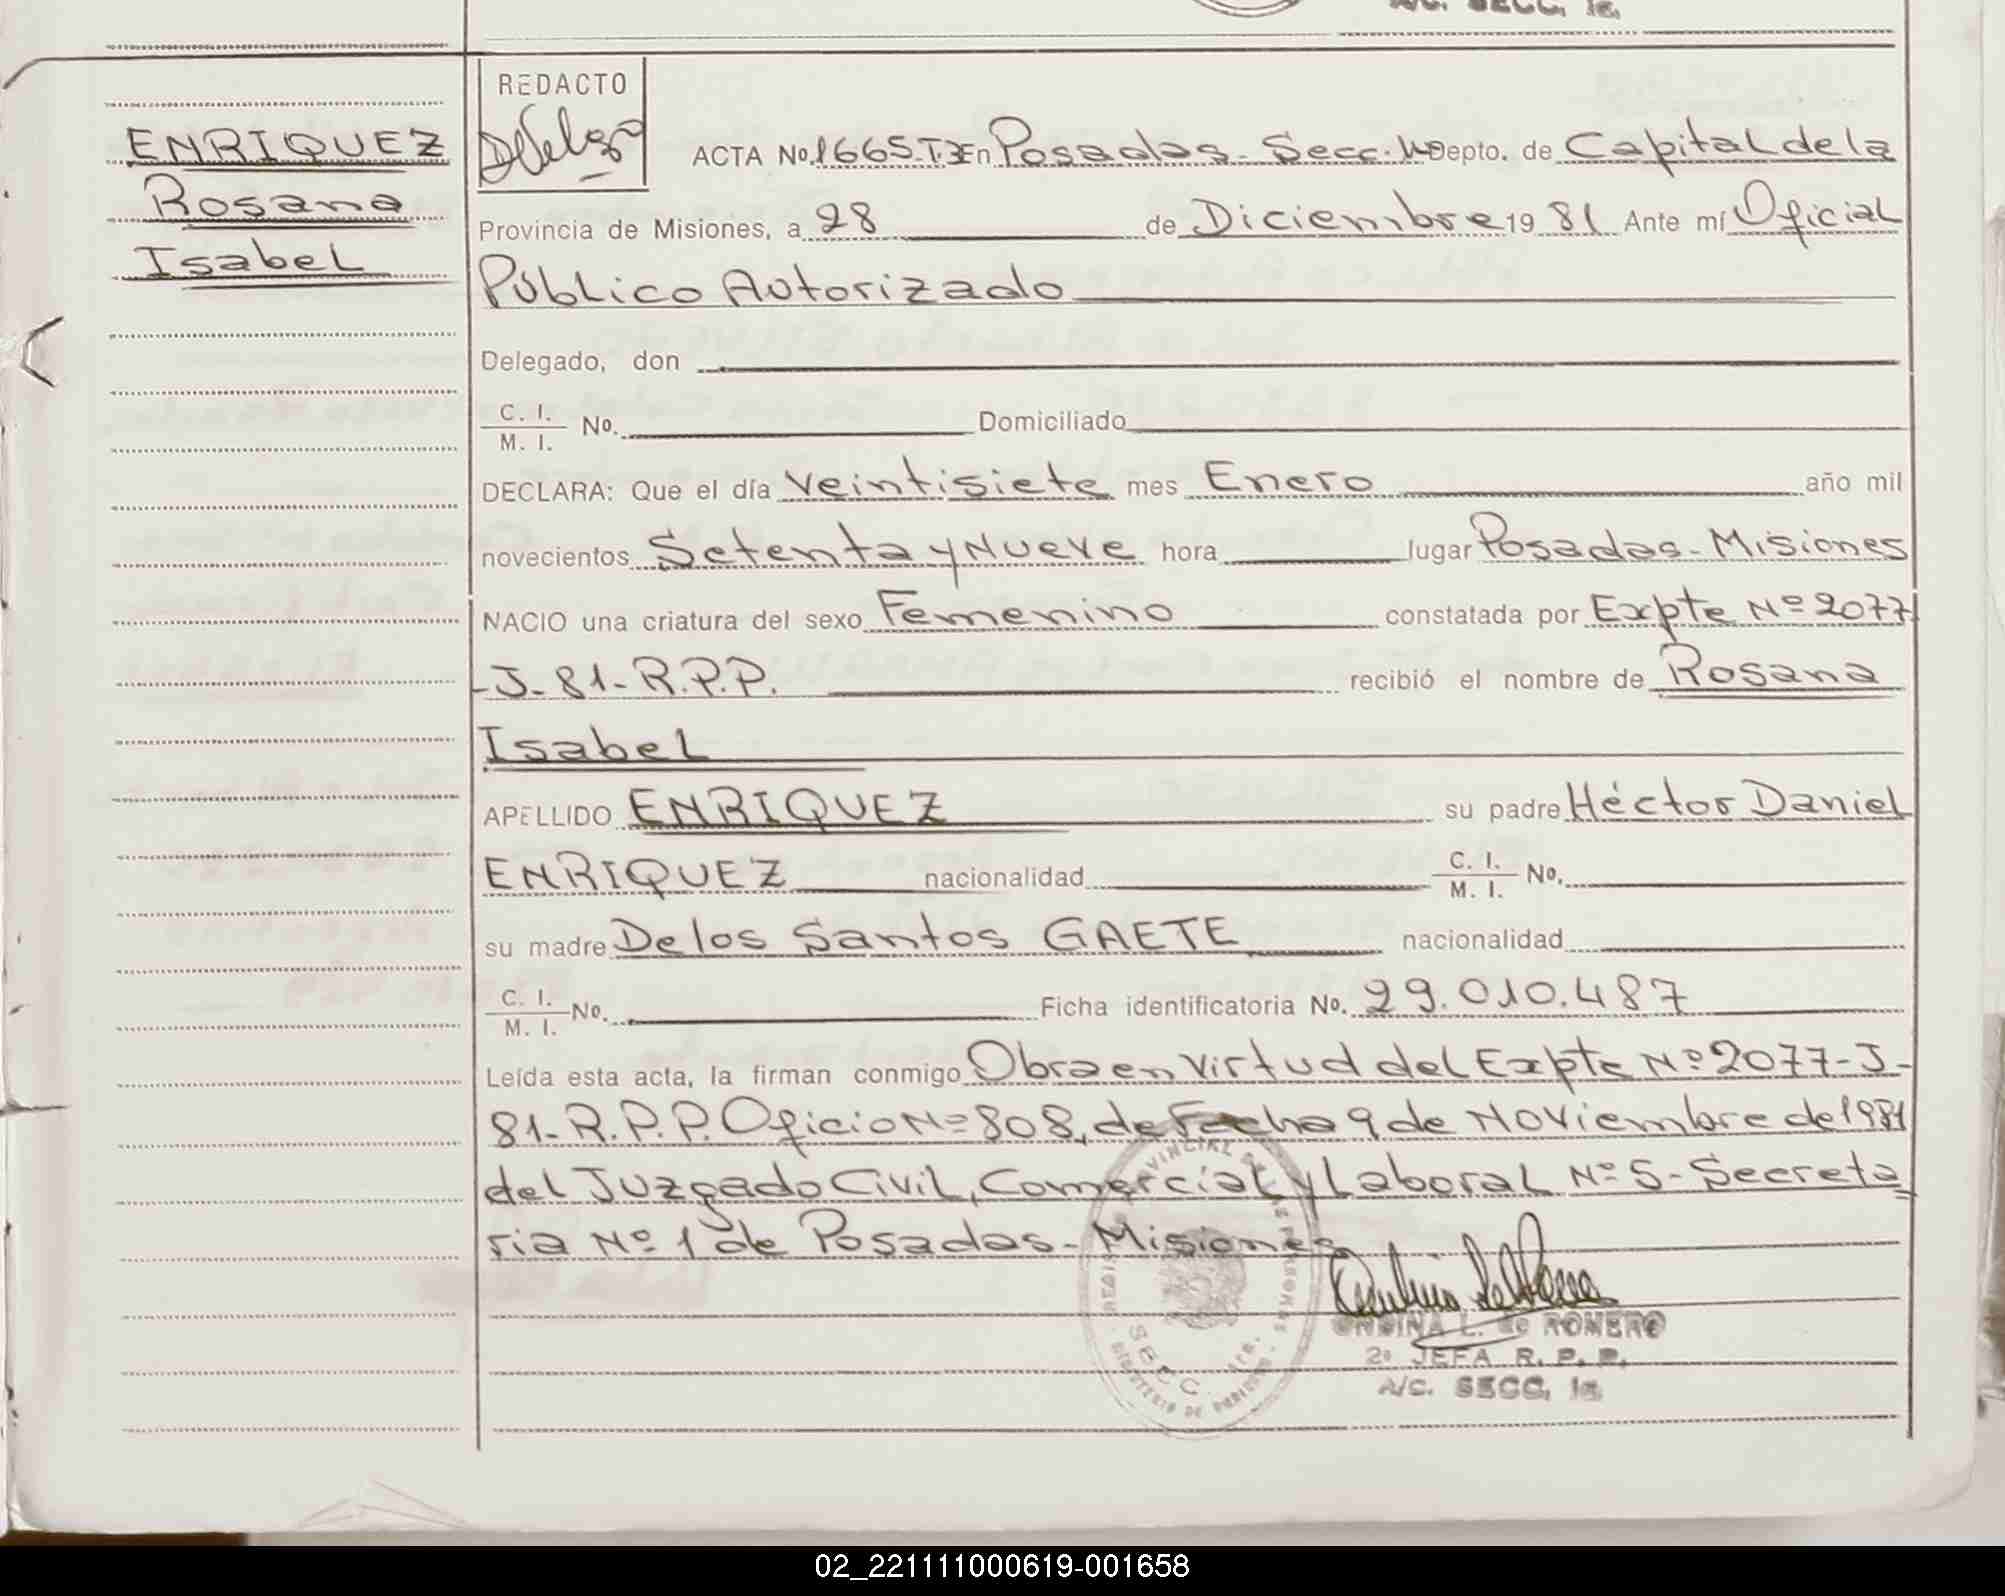 A/C. SECC. 1a.
ENRIQUEZ
Rosana
Isabel
REDACTO
ACTA No. 1665-T.3 En Posadas - Secc. Depto. de Capital de la
Provincia de Misiones, a 28 de Diciembre 19 81 Ante mí Oficial
Público Autorizado
Delegado, don
C. I.
M. I. No. Domiciliado
DECLARA: Que el día veintisiete mes Enero año mil
novecientos Setenta y Nueve hora lugar Posadas - Misiones
NACIO una criatura del sexo Femenino constatada por Expte Nº 2077
-J-81-R.P.P. recibió el nombre de Rosana
Isabel
APELLIDO ENRIQUEZ su padre Héctor Daniel
ENRIQUEZ nacionalidad C. I.
M. I. No.
su madre De los Santos GAETE nacionalidad
C. I.
M. I. No. Ficha identificatoria No. 29.010.487
Leída esta acta, la firman conmigo Obra en virtud del Expte Nº 2077-J-
81-R.P.P. Oficio Nº 808, de Fecha 9 de Noviembre de 1981
del Juzgado Civil, Comercial y Laboral Nº 5 - Secreta
ria Nº 1 de Posadas - Misiones
ONDINA L. de ROMERO
2º JEFA R. P. P.
A/C. SECC. 1a.
02_221111000619-001658